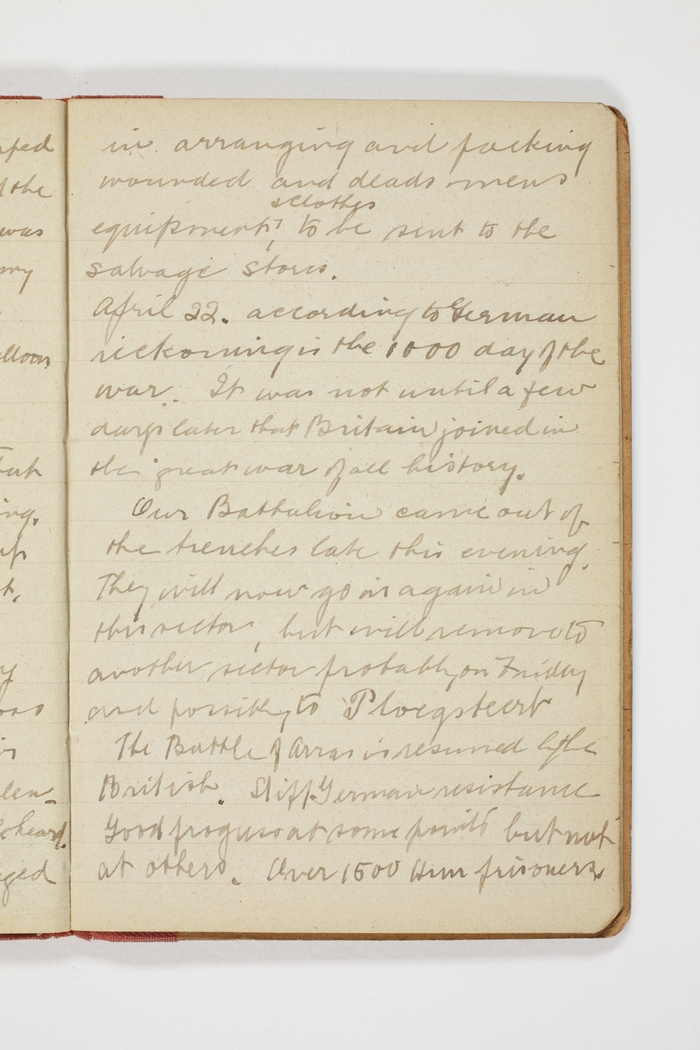 in arranging and packing
wounded and deads mens
& clothes
equipments, to be sent to the
salvage stores.
April 22. according to German
reckoning is the 1000 day of the
war. It was not until a few
days later that Britain joined in
the great war of all history.
Our Battalion came out of
the trenches late this evening.
They will now go in again in
this sector, but will remove to
another sector probably on Friday
and possibly to Ploegsteert
The Battle of Arras is resumed by the
British. Stiff German resistance
Good progress at some points but not
at others. Over 1500 Hun prisoners
ped
the
was
my
out
ing.
up
t,
y
was
len-
heard.
ged